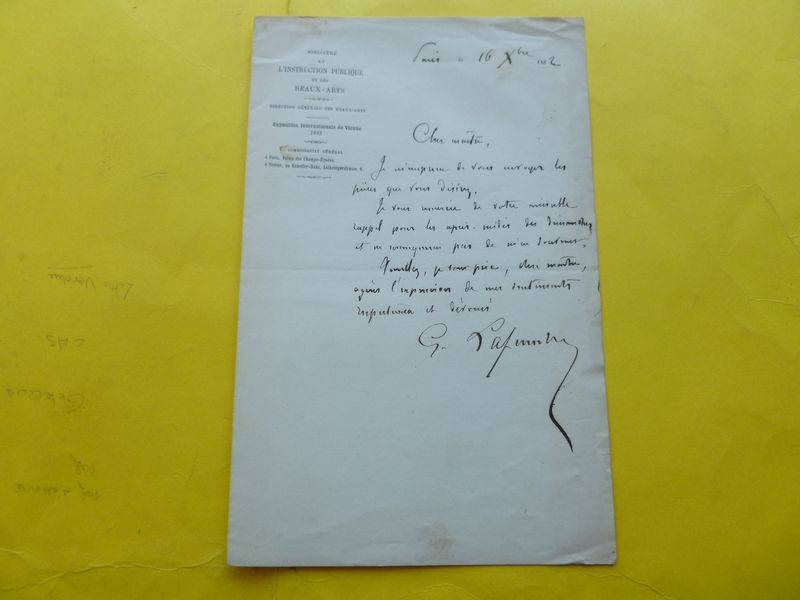 MINISTÈRE
DE
L'INSTRUCTION PUBLIQUE
ET DES
BEAUX-ARTS
DIRECTION GÉNÉRALE DES BEAUX-ARTS
Exposition Internationale de Vienne
1882
COMMISSARIAT GÉNÉRAL
à Paris, Palais des Champs-Élysées,
à Vienne,
Paris le 16 Xbre 1882
Cher maître,
Je m'empresse de vous envoyer les
pièces que vous désirez.
Je vous remercie de votre aimable
rappel pour les après-midis des dimanches
et ne manquerai pas de m'en souvenir.
Veuillez, je vous prie, cher maître,
agréer l'expression de mes sentiments
respectueux et dévoués
G. Lafenestre
CAS